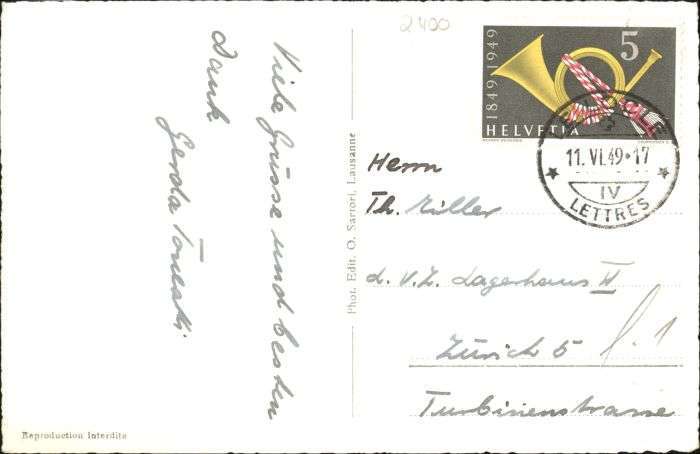 2400
Viele Grüsse und besten
Dank
Gerda
Reproduction Interdite
Phot. Edit. O. Sartori, Lausanne
1849-1949
5
HELVETIA
11.VI.49-17
IV
LETTRES
Herrn
Th. Miller
L.V.Z. Lagerhaus IV
Zürich 5
Turbinenstrasse